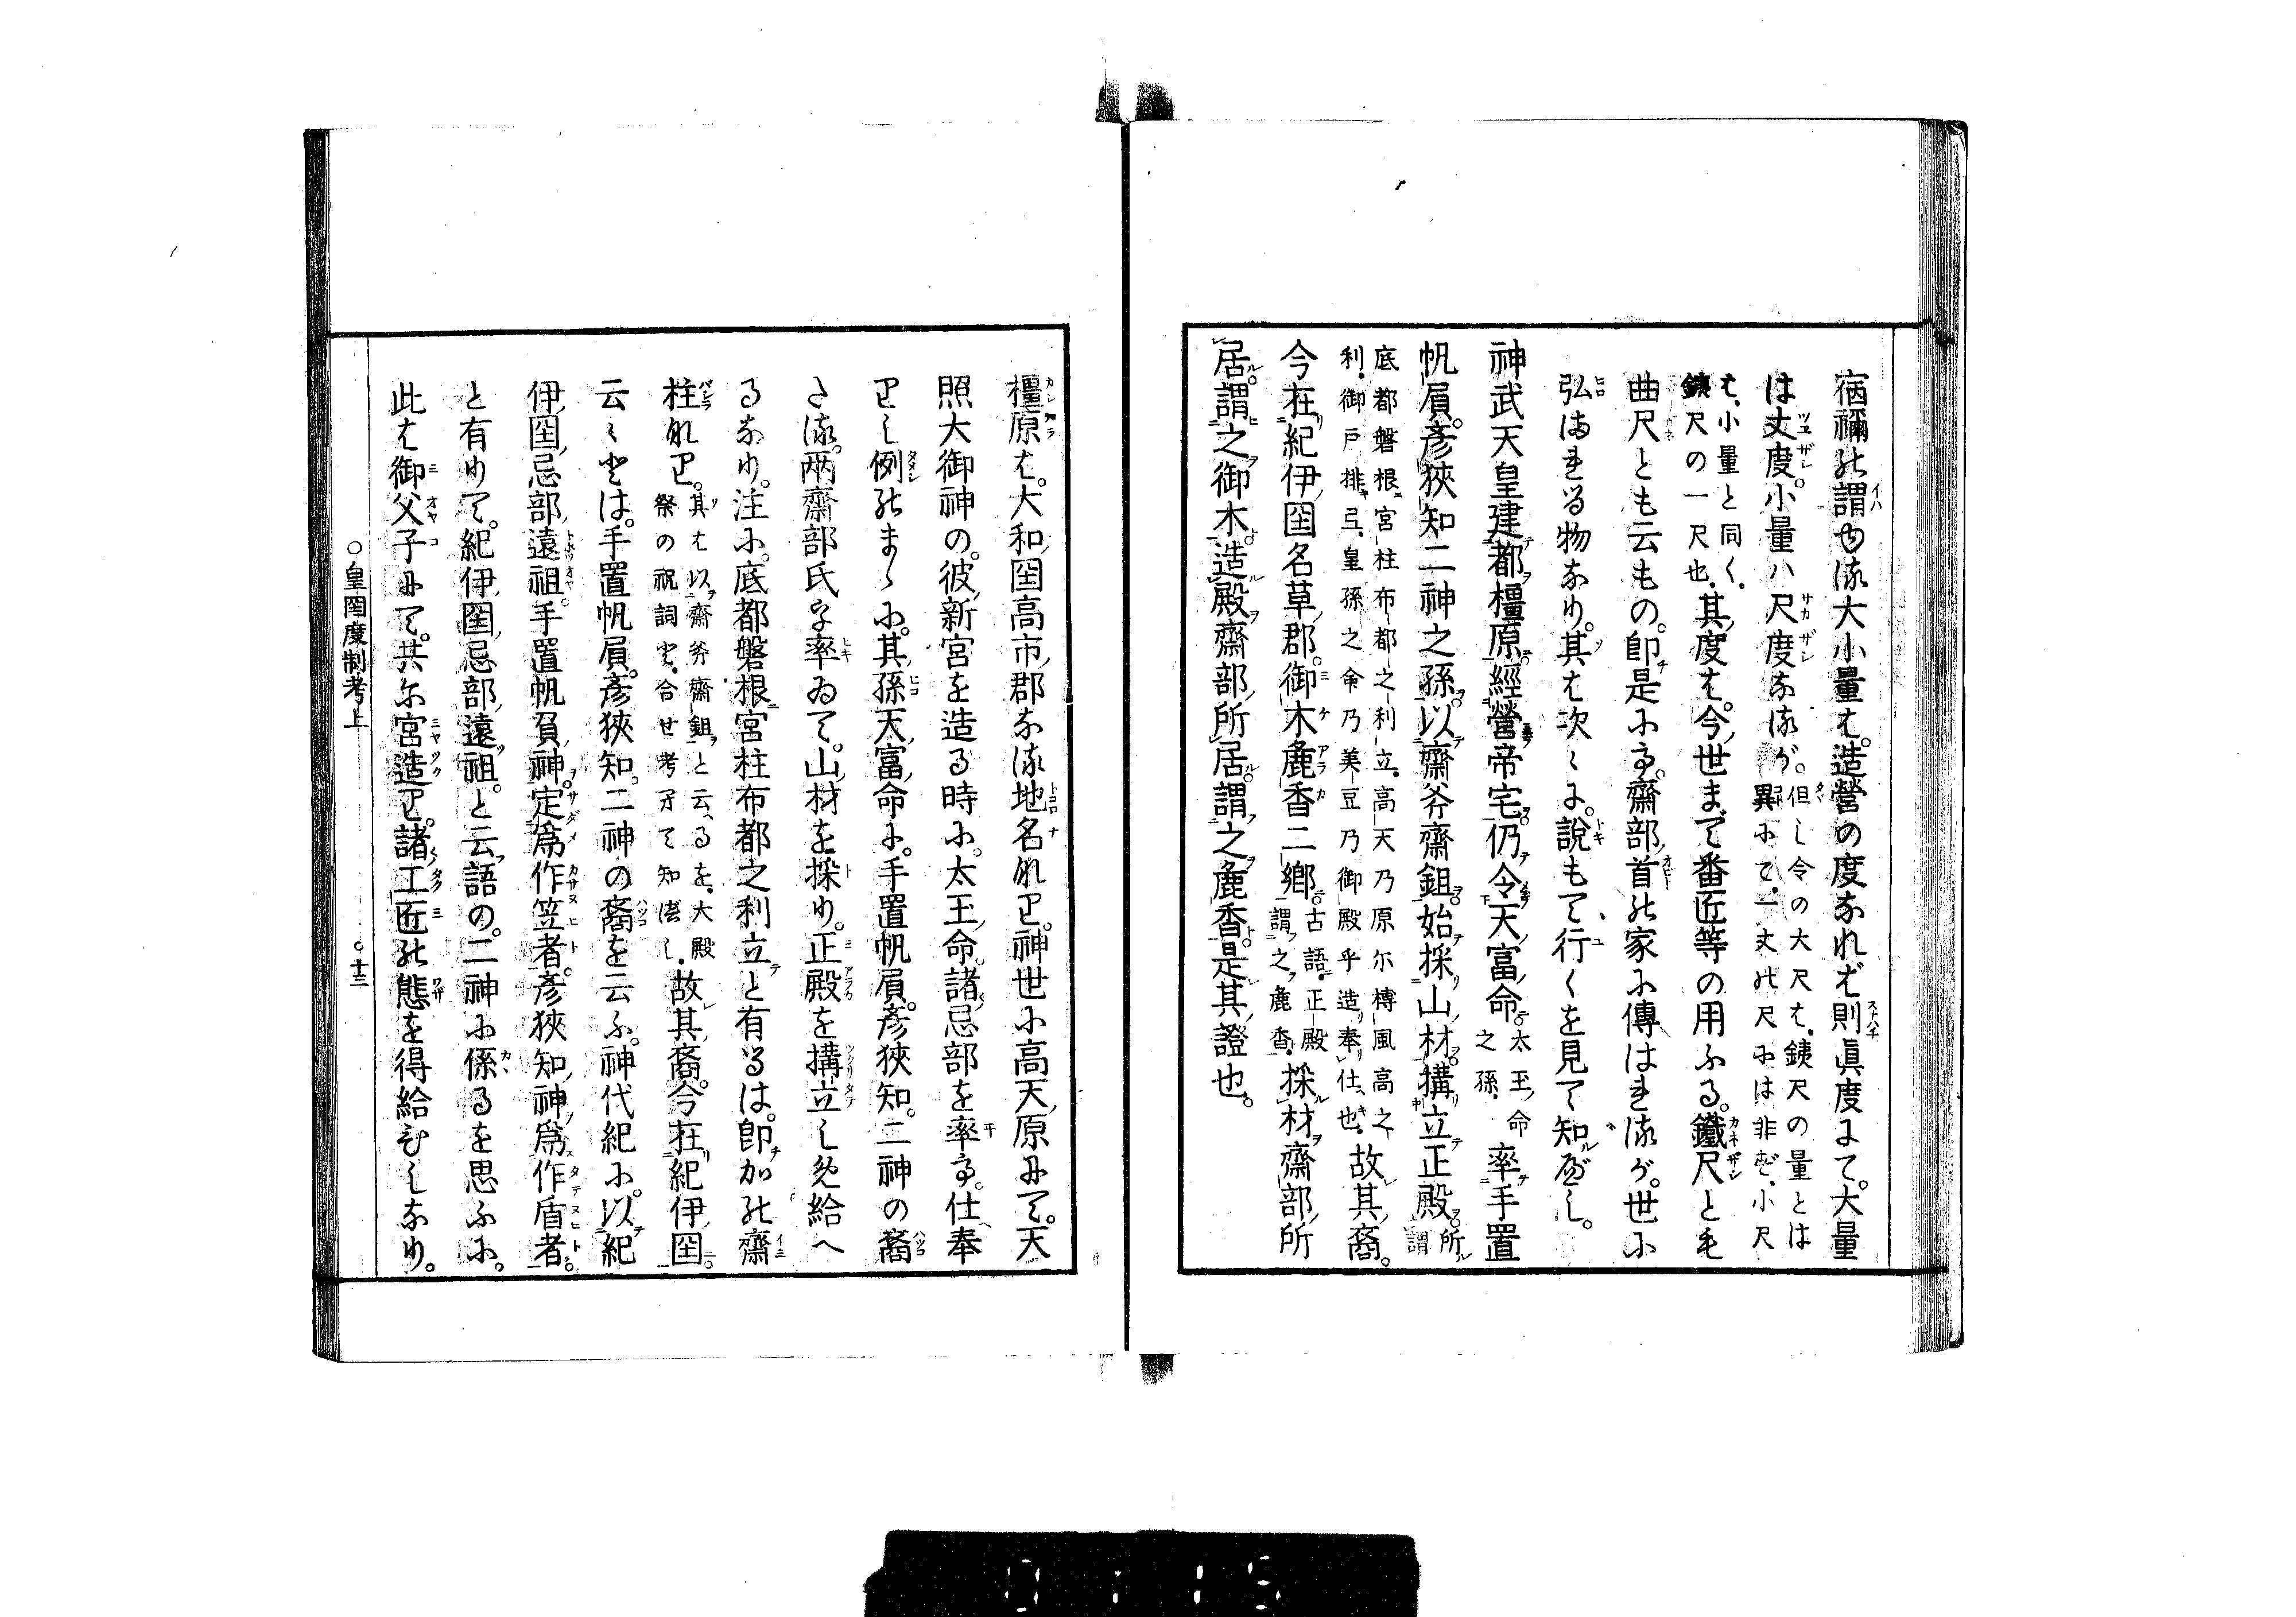 宿禰の謂ゆる大小量は。造營の度なれば則眞度にて。大量
は丈度。小量ハ尺度なるが。但し令の大尺は。鐵尺の量とは異にて。一丈の尺には非ず。小尺
は、小量と同く。鐵尺の一尺也。其度は。今世まで番匠等の用ふる。鐵尺とも
曲尺とも云もの。卽是にて。齋部首の家に傳はれるが。世に
弘まれる物なり。其は次々に。說もて行くを見て知べし。
神武天皇建都橿原。經營帝宅。仍令天富命。太玉命之孫。率手置
帆屓。彥狹知二神之孫。以齋斧齋鉏。始採山材。搆立正殿。所謂
底都磐根宮柱布都之利立。高天乃原尓槫風高之利。御戸排弖。皇孫之命乃美豆乃御殿乎造奉仕也。故其裔。
今在紀伊国名草郡。御木麁香二鄕。古語。正殿謂之麁香。採材齋部所
居。謂之御木。造殿齋部所居。謂之麁香。是其證也。
橿原は。大和国高市郡なる地名なり。神世に高天原にて。天
照大御神の。彼新宮を造る時に。太玉命。諸忌部を率て。仕奉
りし例のまゝに。其孫天富命に。手置帆屓。彥狹知。二神の裔
たる。兩齋部氏を率ゐて。山材を採り。正殿を搆立しめ給へ
るなり。注に。底都磐根宮柱布都之利立と有るは。卽加の齋
柱なり。其は以齋斧齋鉏と云るを。大殿祭の祝詞と。合せ考へて知べし。故其裔。今在紀伊国
云々とは。手置帆屓。彥狹知。二神の裔を云ふ。神代紀に。以紀
伊国忌部遠祖。手置帆負神。定爲作笠者。彥狹知神爲作盾者。
と有りて。紀伊国忌部遠祖。と云語の。二神に係るを思ふに。
此は御父子にて。共に宮造り。諸工匠の態を得給ひしなり。
○皇国度制考上
○十三